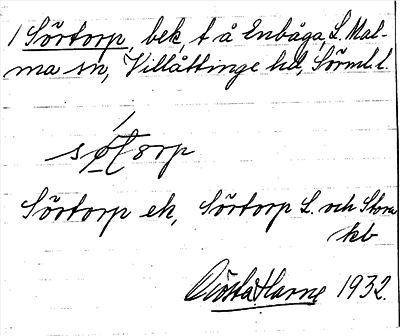 1 Sörtorp, bek, t å Enbåga, L. Mal-
ma sn, Villåttinge hd, Sörml. l.
Sörtorp ek, Sörtorp L. och Stora
kb
Gösta Harne 1932.